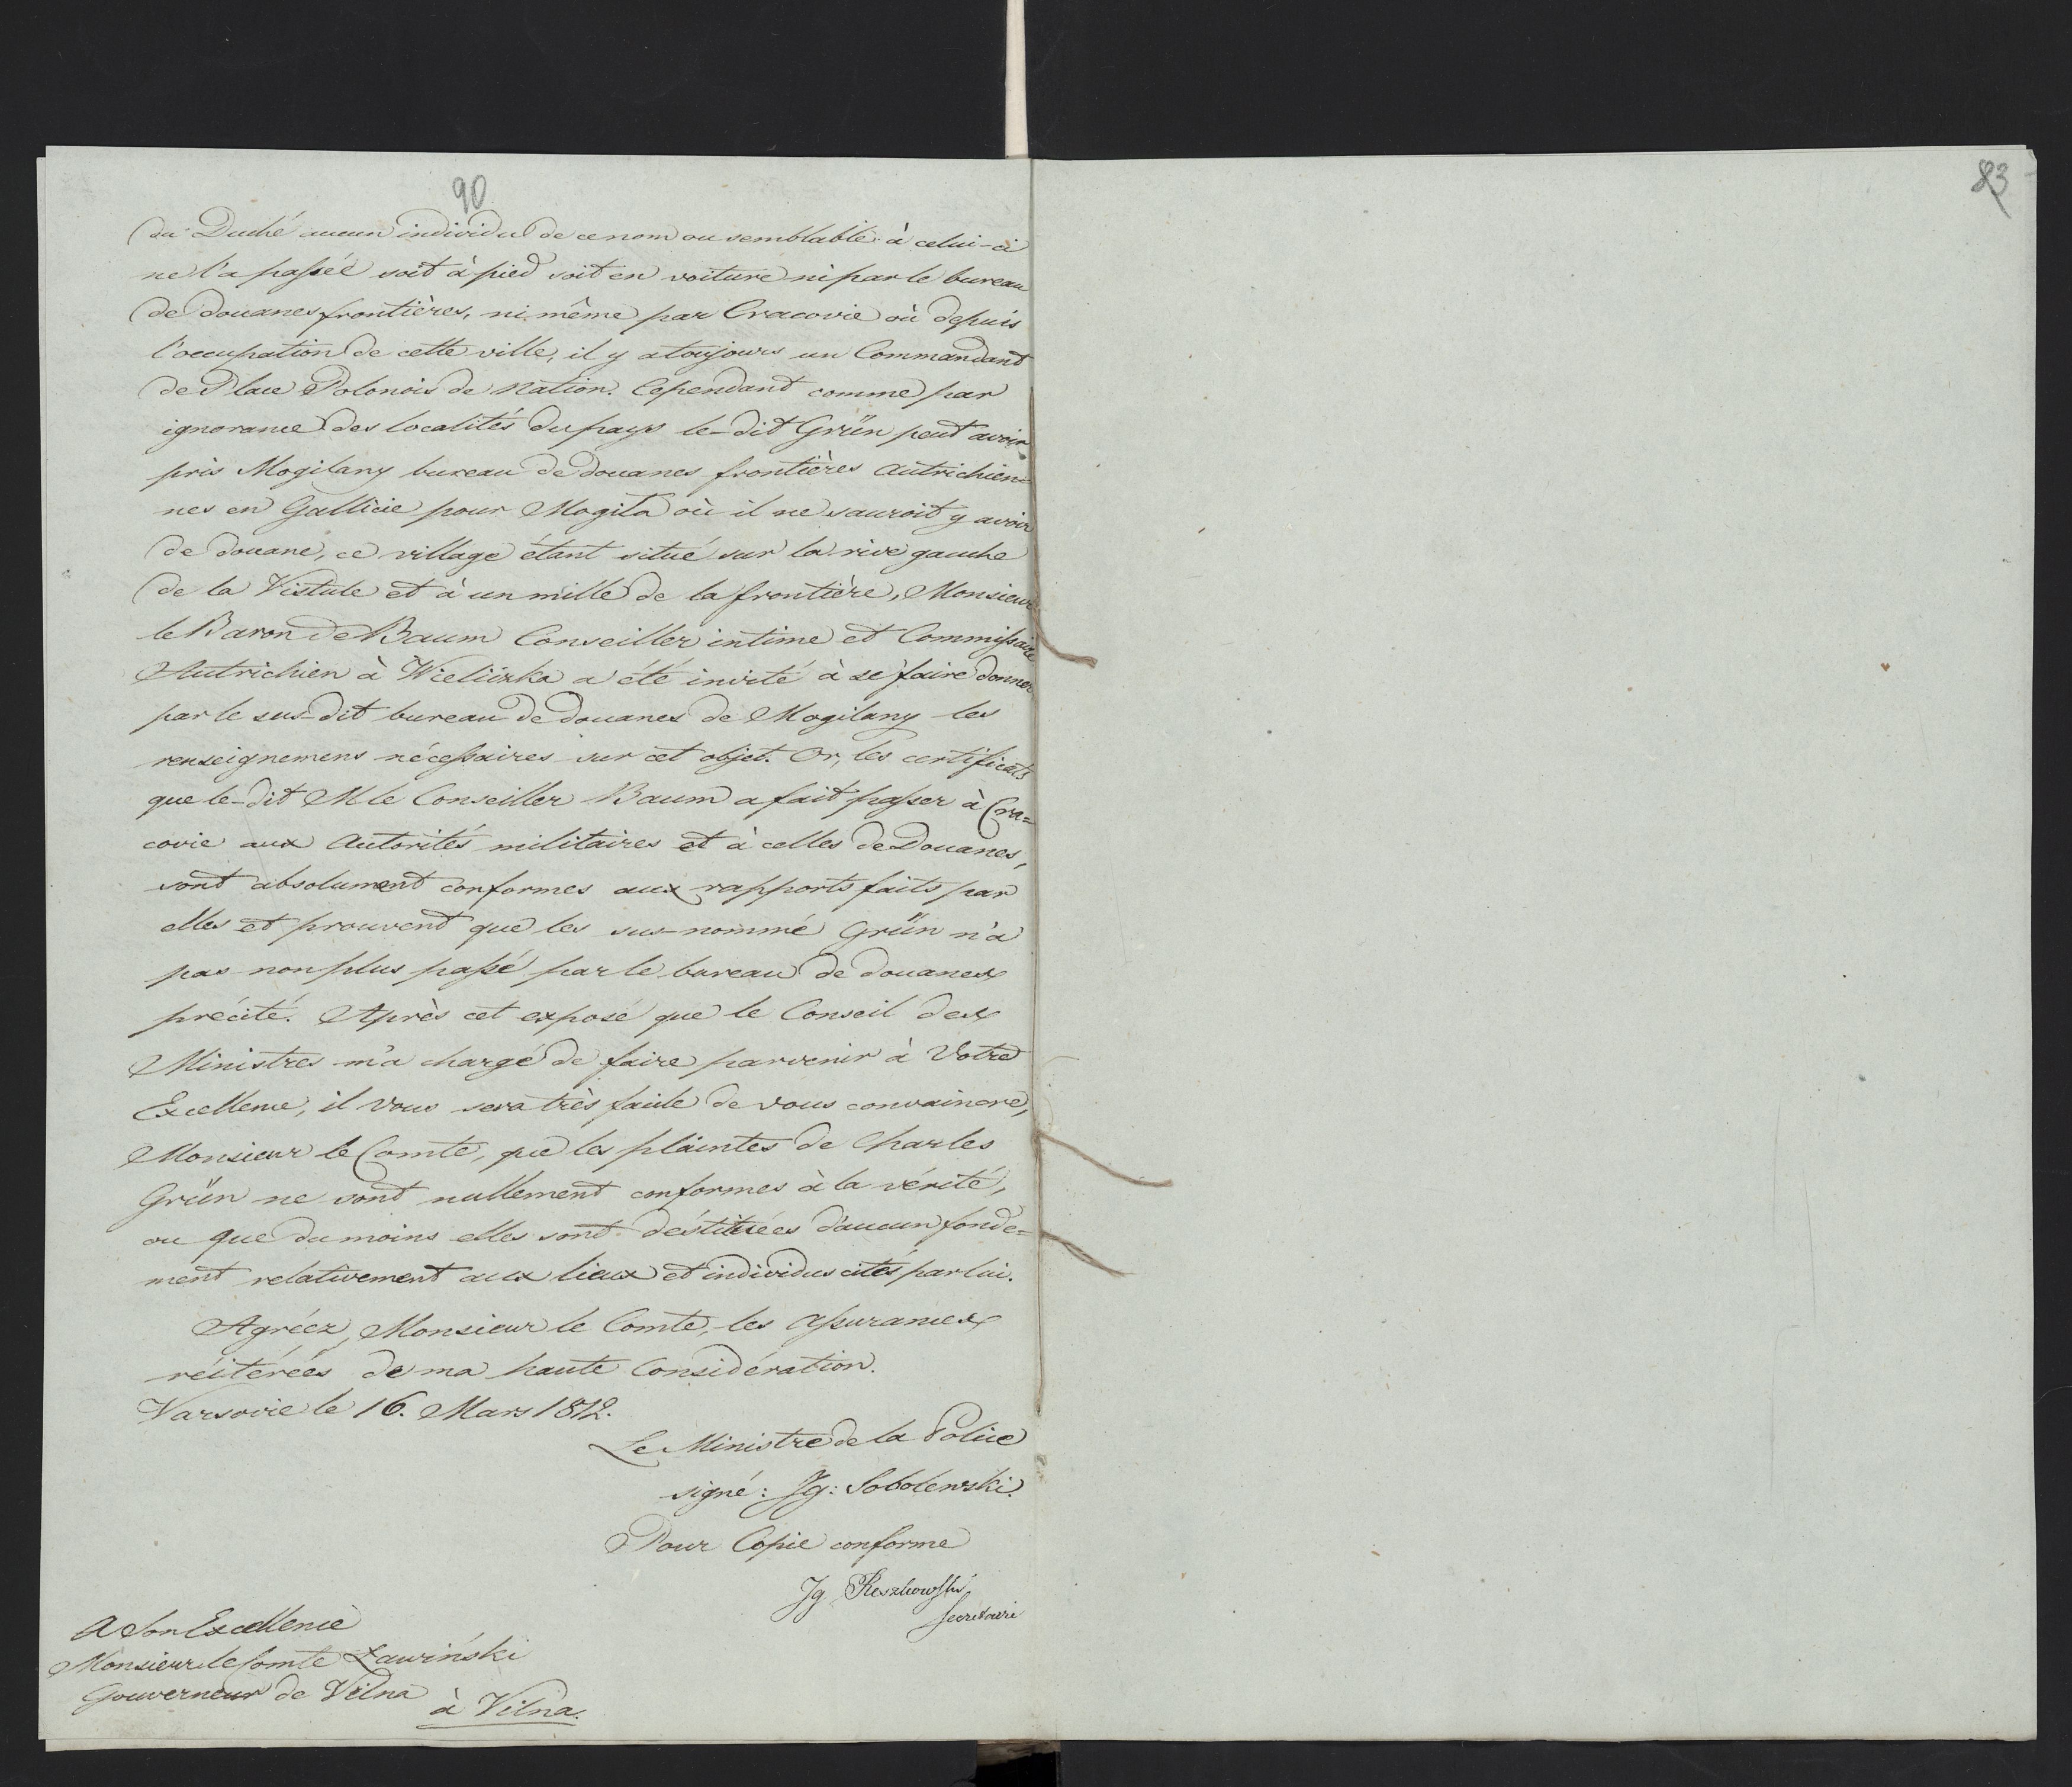 90
83
du Duché aucun individu de ce nom ou semblable à celui-ci
ne l'a passée soit à pied soit en voiture ni par le bureau
de douanes frontières, ni même par Cracovie où depuis
l'occupation de cette ville, il y a toujours un Commandant
de Place Polonois de Nation. Cependant comme par
ignorance des localités du pays le-dit Grün peut avoir
pris Mogilany bureau de douanes frontières Autrichien=
nes en Gallicie pour Mogiła où il ne sauroit y avoir
de douane, ce village étant situé sur la rive gauche
de la Vistule et à un mille de la frontière, Monsieur
le Baron de Baum Conseiller intime et Commissaire
Autrichien à Wieliczka a été invité à se faire donner
par le sus-dit bureau de douanes de Mogilany les
renseignemens nécessaires sur cet objet. Or, les certificats
que le-dit M le Conseiller Baum a fait passer à Cra=
covie aux Autorités militaires et à celles de Douanes,
sont absolument conformes aux rapports faits par
elles et prouvent que les sus-nommé Grün n'a
pas non plus passé par le bureau de douanes
précité. Après cet exposé que le Conseil des
Ministres m'a chargé de faire parvenir à Votre
Excellence, il vous sera très facile de vous convaincre,
Monsieur le Comte, que les plaintes de Charles
Grün ne sont nullement conformes à la vérité,
ou que du moins elles sont déstituées d'aucun fonde=
ment relativement aux lieux et individus cités par lui.
Agréez, Monsieur le Comte, les assurances
réitérées de ma haute Considération.
Varsovie le 16. Mars 1812.
Le Ministre de la Police
signé: Ig: Sobolewski.
Pour Copie conforme
Ig Reszkowski
Secretaire
A Son Excellence
Monsieur le Comte Ławiński
Gouverneur de Vilna
à Vilna.